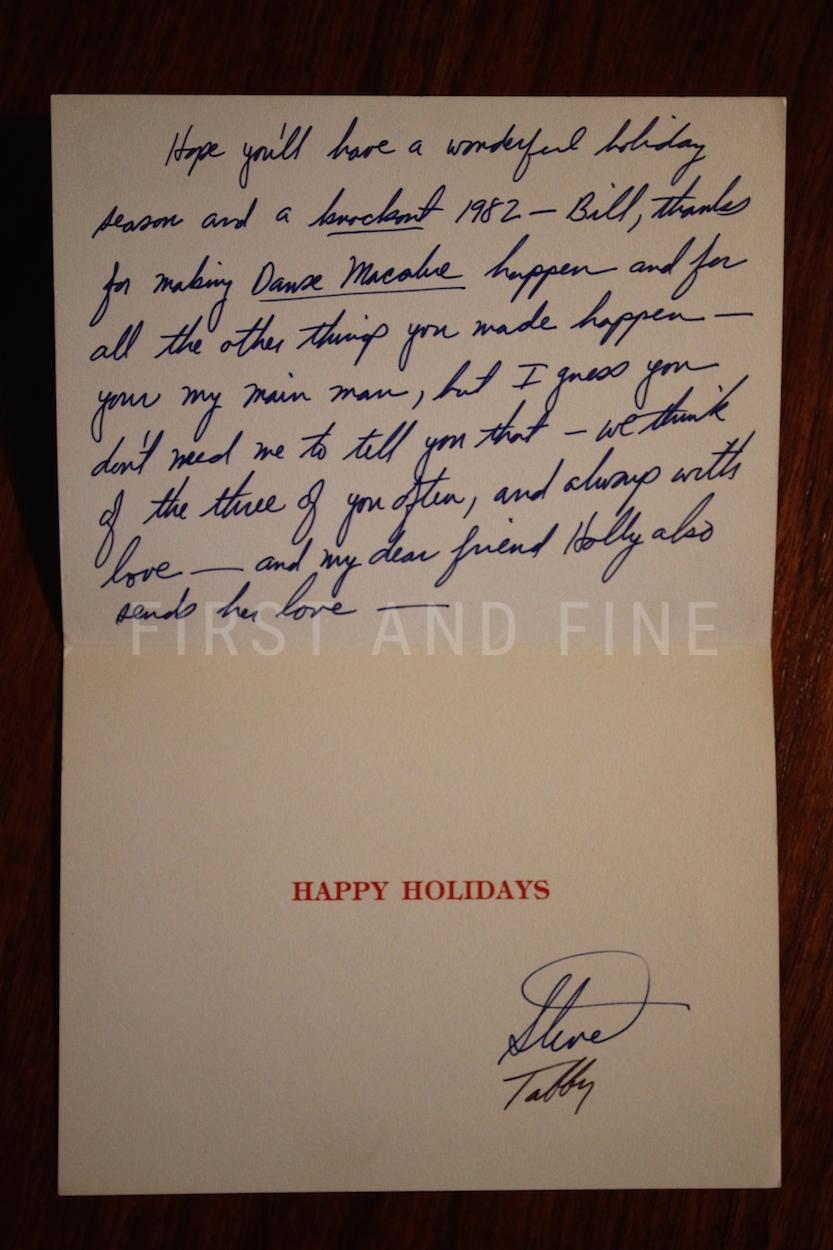 Hope you'll have a wonderful holiday
season and a knockout 1982 — Bill, thanks
for making Danse Macabre happen and for
all the other things you made happen —
your my main man, but I guess you
don't need me to tell you that — we think
of the three of you often, and always with
love — and my dear friend Holly also
sends her love —
FIRST AND FINE
HAPPY HOLIDAYS
Steve
Tabby